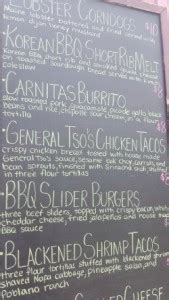 LOBSTER CORNDOGS $18
Maine lobster battered and fried corndog
KOREAN BBQ SHORT RIB MELT
Korean BBQ short rib and smoked gouda cheese
on roasted sourdough bread served with kimchi
coleslaw
CARNITAS BURRITO
slow roasted pork, guacamole, pico de gallo, black
beans and rice, chipotle sour cream, in a flour
tortilla
GENERAL TSO'S CHICKEN TACOS
crispy chicken breast tossed with house made
General Tso's sauce, sesame oak choy, carrots, and
bean sprouts, finished with Sriracha aioli, stuffed
in three flour tortillas
BBQ SLIDER BURGERS
three beef sliders, topped with crispy bacon, white
cheddar cheese, fried jalapeños and house made
BBQ sauce
BLACKENED SHRIMP TACOS
three flour tortillas stuffed with blackened shrimp,
shaved Napa cabbage, pineapple salsa, and
Poblano ranch
CHEESE